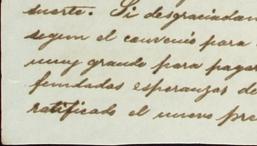 suerte. Si desgraciadam
segun el convenio para
muy grande para pagar
fundadas esperanzas de
ratificado el nuevo pre